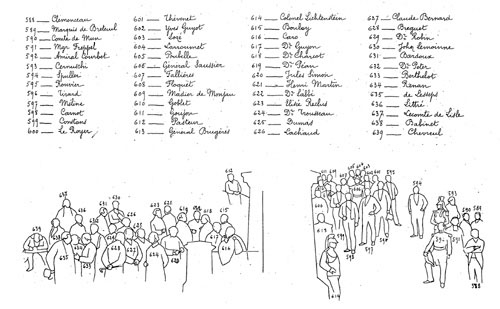 588 — Clemenceau
589 — Marquis de Breteuil
590 — Comte de Mun
591 — Mgr Freppel
592 — Amiral Courbet
593 — Cernuschi
594 — Spuller
595 — Rouvier
596 — Tirard
597 — Méline
598 — Carnot
599 — Constans
600 — Le Royer
601 — Thévenet
602 — Yves Guyot
603 — Lozé
604 — Larroumet
605 — Poubelle
606 — Général Saussier
607 — Fallières
608 — Floquet
609 — Madier de Montjau
610 — Goblet
611 — Goujon
612 — Pasteur
613 — Général Brugère
614 — Colonel Lichtenstein
615 — Bouley
616 — Caro
617 — Dr Guyon
618 — Dr Charcot
619 — Dr Péan
620 — Jules Simon
621 — Henri Martin
622 — Dr Labbé
623 — Elisée Reclus
624 — Dr Trousseau
625 — Dumas
626 — Lachaud
627 — Claude Bernard
628 — Breguet
629 — Dr Robin
630 — John Lemoinne
631 — Bardoux
632 — Dr Potin
633 — Berthelot
634 — Renan
635 — de Lesseps
636 — Littré
637 — Leconte de Lisle
638 — Babinet
639 — Chevreul
612
637
631
630
619
618
615
639
635
634
628
625
624
617
616
613
614
598
594
593
590
589
588